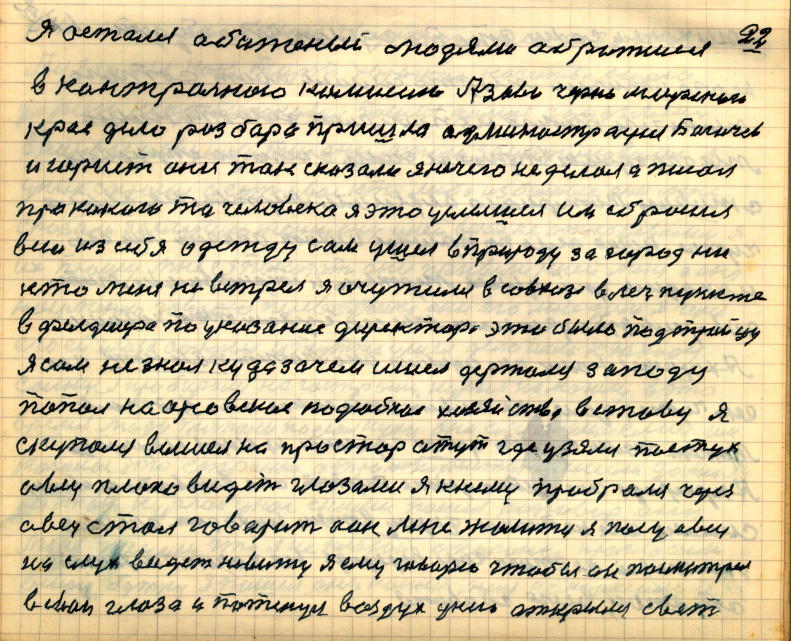 22
Я остался абаженый людями абротился
в кантролного камисию Азово черно морского
края дело розбара пришла администрация Богачев
и гориет они так сказали я ничего не делал а писал
про какого та человека я это услышел и сбросил
всю из себя одежду сам ушел в природу за город ни
кто мене не встрел я очутился в совхозе в леч пункте
в фелдшера по указание директора это было под
я сам не знал куда зачем шшел держался заподу
попал на основское подсобное хозяйство в ставу я
скупался вышел на простор а тут где узялся пастух
авец плохо видет глазами я к нему пробрался через
авец стал говарит он мне жалится я посу авец
на слух видет не вижу я ему говорю чтобы он посмотрел
в свои глаза и потянул воздух у него открылся свет